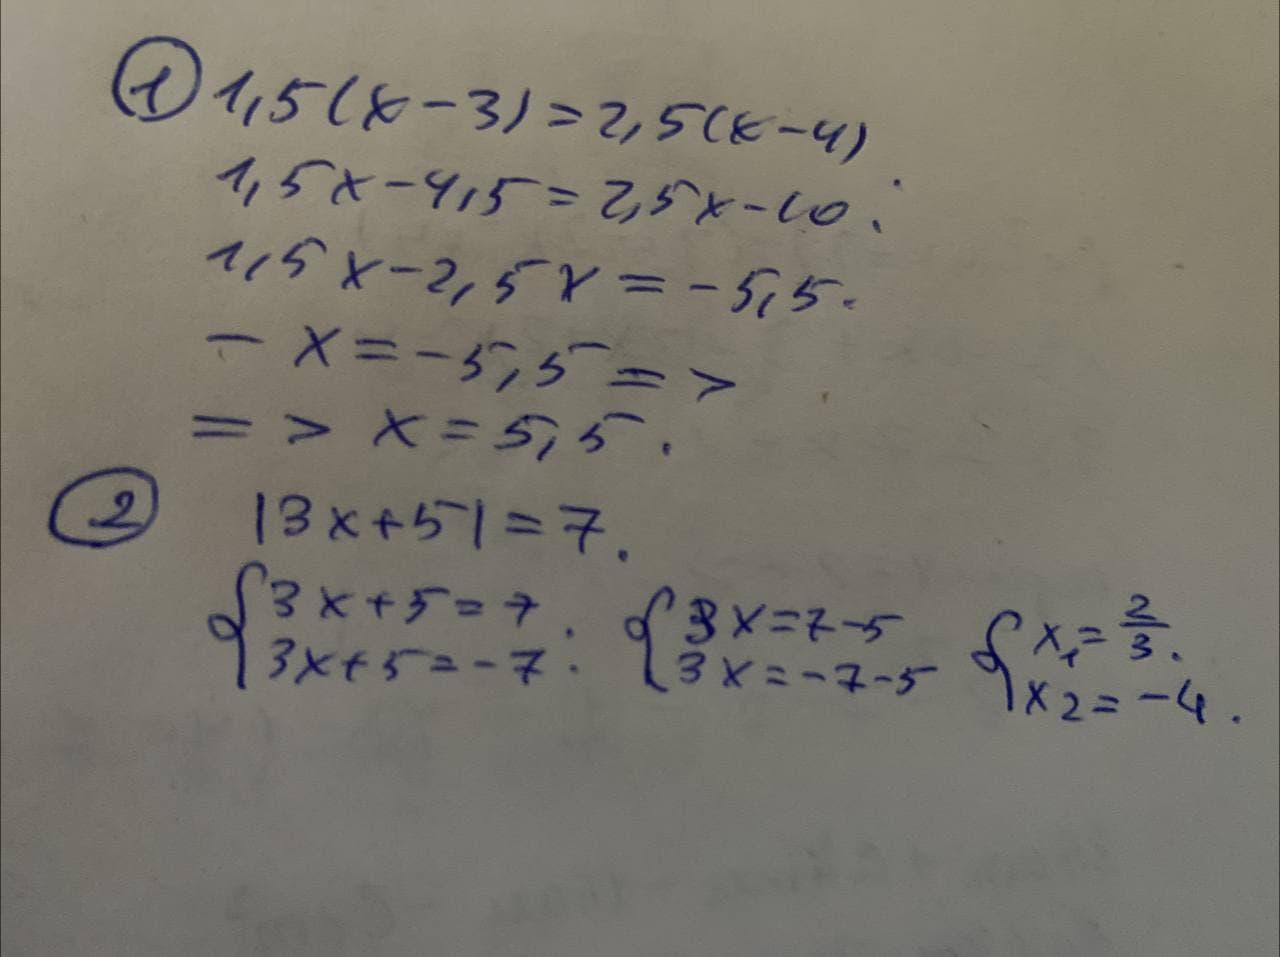 ① 1,5(x-3)=2,5(x-4)
1,5x-4,5=2,5x-10;
1,5x-2,5x=-5,5.
-x=-5,5=>
=>x=5,5.
② |3x+5|=7.
{3x+5=7 {3x=7-5 {x₁=2/3.
3x+5=-7. 3x=-7-5 x₂=-4.